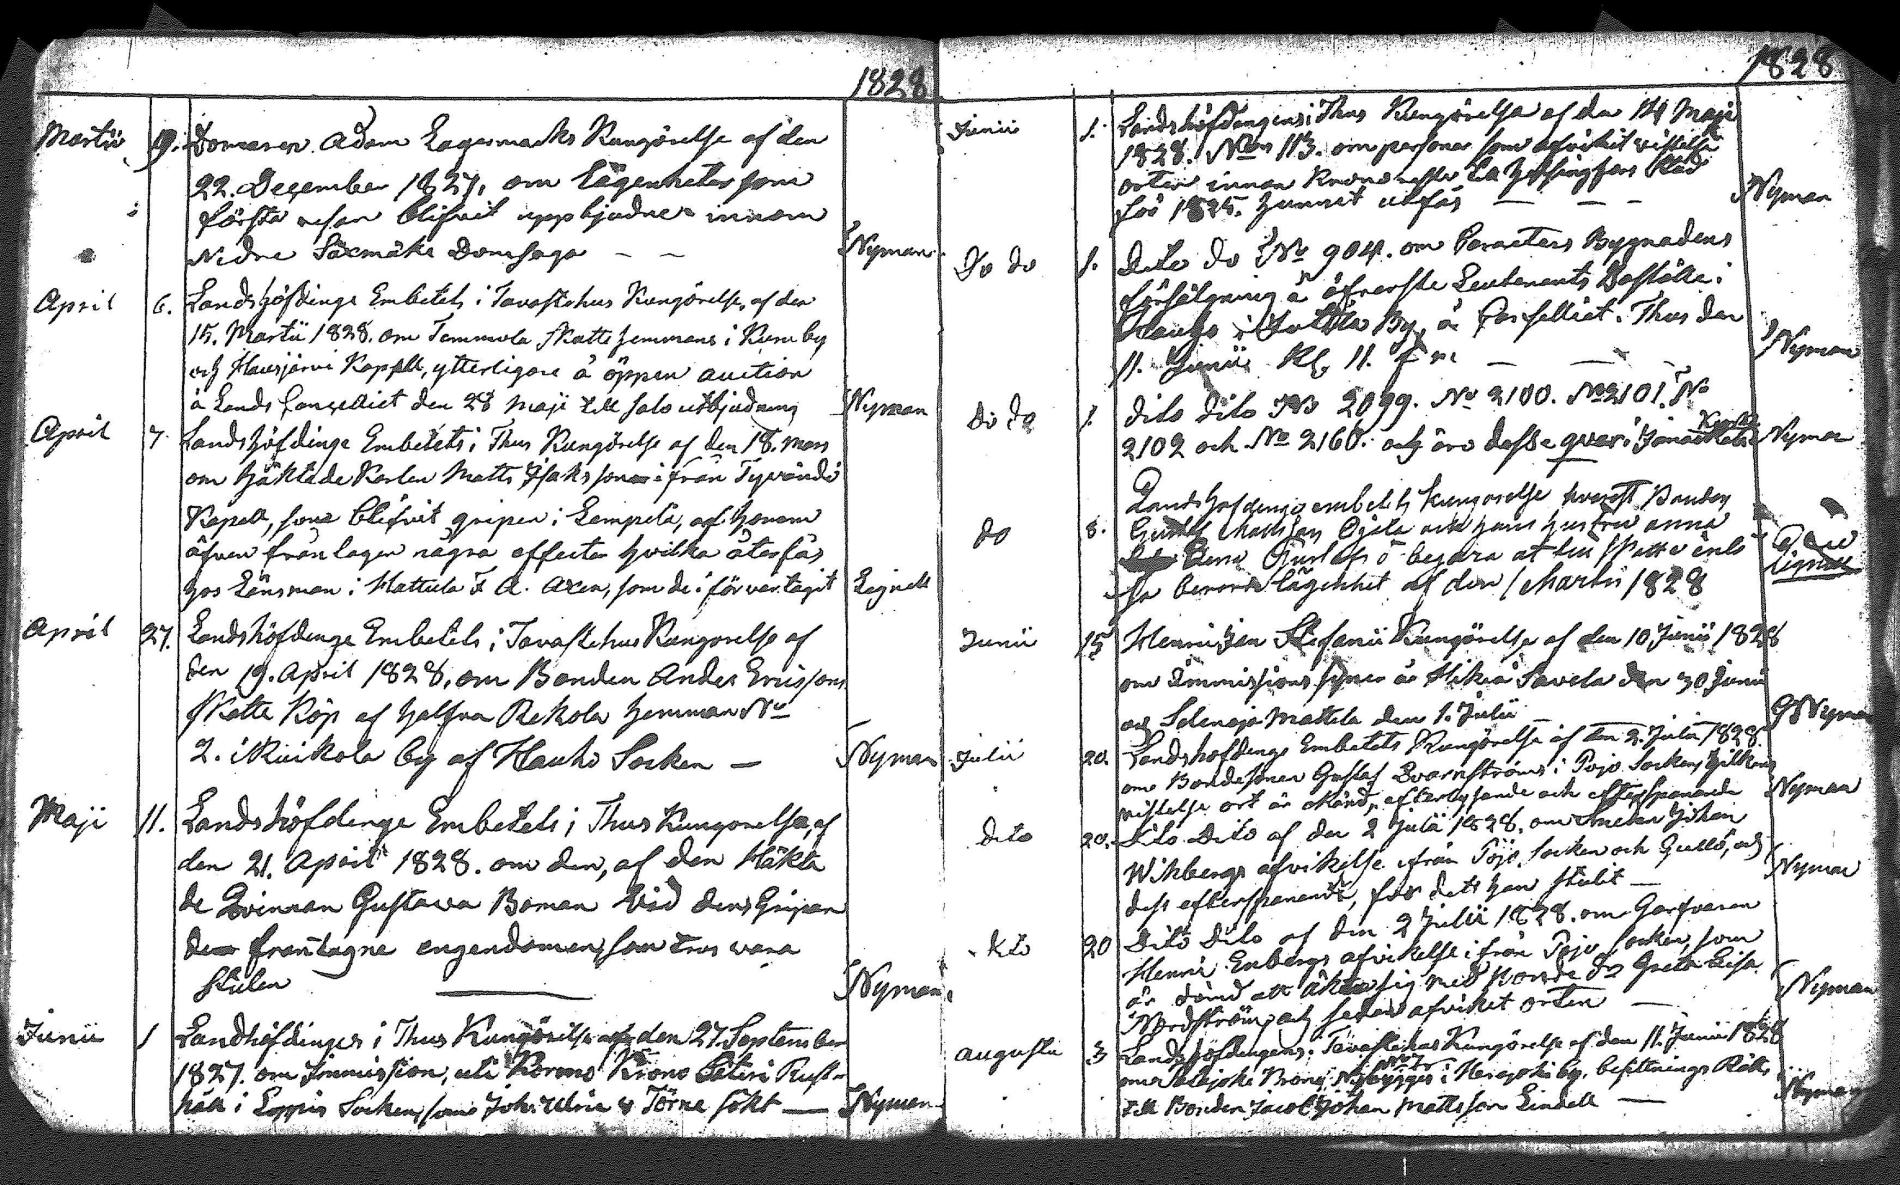 1828
Martii 9. Domaren Adam Lagermarks Kungörelse af den
22. December 1827, om lägenheter som
första resan blifvit uppbjudne innom
Nedre Säxmäki Domsaga — — Nyman
April 6. Landshöfdinge Embetets i Tavastehus Kungörelse, af den
15. Martii 1828. om Tommola Skatte hemmans i Kurn by
och Hausjärvi Kapell, ytterligare å öppen auction
å Lands Cancelliet den 28 Maji till salo utbjudning Nyman
April 7 Landshöfdinge Embetets i Thus Kungörelse af den 18. Mars
om häktade Karlen Matts Isaksson ifrån Tyrvändö
Kapell, som blifvit gripen i Lempelä, af honom
äfven fråntagen några effecter hvilka återfås
hos Länsman i Hattula F A. Axen, som de i förvar tagit Lignell
April 27. Landshöfdinge Embetets i Tavastehus Kungorelse af
den 19. April 1828, om Bonden Anders Ericssons
Skatte Köp af halfva Rekola hemman No
2. i Kuikola by af Hauho Socken — Nyman
Maji 11. Landshöfdinge Embetets i Thus Kungorelse, af
den 21. April 1828. om den, af den Häkta
de Qvinnan Gustava Boman vid dens Gripan
de frantagne engendomen, som tros vara
stulen Nyman
Junii 1 Landhöfdinges i Thus Kungörelse af den 27. September
1827. om Immission, uti Kormo Krono Säteri Rust-
håll i Loppis Socken, som Joh: Ulric v Törne sökt — Nyman
1828
Junii 1. Landshöfdingens i Thus Kungörelse af den 14 Maji
1828. No 113. om personer som afvikit vistelse
orten innan Krono rester till Helsingfors Stad
för 1825. hunnit utfås — — — Nyman
Do do 1. Dito do No 904. om Caracters Bygnadens
försälgning å öfverste Leutenants Boställe i
Hauho i By, å Cancelliet i Thus den
11. Junii Kl. 11. f m — — — Nyman
Do do 1. dito dito No 2099. No 2100. No 2101. No
2102 och No 2160. och äro desse qvar i Janackala Kyrka Nyman
do 8. Landshöfdinge embetets kungorelse hvarest Bonden
Gustaf Mattsson Ojala och hans hustru anna
Lena Gustafs D begära at till Skatte inlö
sa berorde lägenhet af den 1 Martii 1828 Lignell
Junii 15 Henric Jan Stefanii Kungörelse af den 10. Junii 1828
om Immissions syner å Hikiä Savela den 30 Junii
och Selenoja Mattila den 1. Julii — G Nyman
Julii 20. Landshöfdinge Embetets Kungörelse af den 2. Julii 1828.
om Bondesonen Gustaf Qvarnströms i Pojo Socken, hvilkens
vistelse ort är okänd, efterlysande och efterspanande Nyman
Dito 20. Dito Dito af den 2 Julii 1828. om Smeden Johan
Wikbergs afvikelse ifrån Pojo Socken och Gullö, och
dess efterspanande, för dets han stulit — Nyman
Dito 20 Dito Dito af den 2 Julii 1828. om Garfvaren
Henric Enbergs afvikelse ifrån Pojo Socken, som
är dömd att äkta sig med Greta Lisa
Nordström och sedan afviket orten — Nyman
Augusti 3 Landshöfdingens i Tavastehus Kungörelse af den 11. Junii 1828
om Krono Nybygges No 7 i by, besittnings Rätt
till Bonden Jacob Johan Mattsson Lindell — Nyman